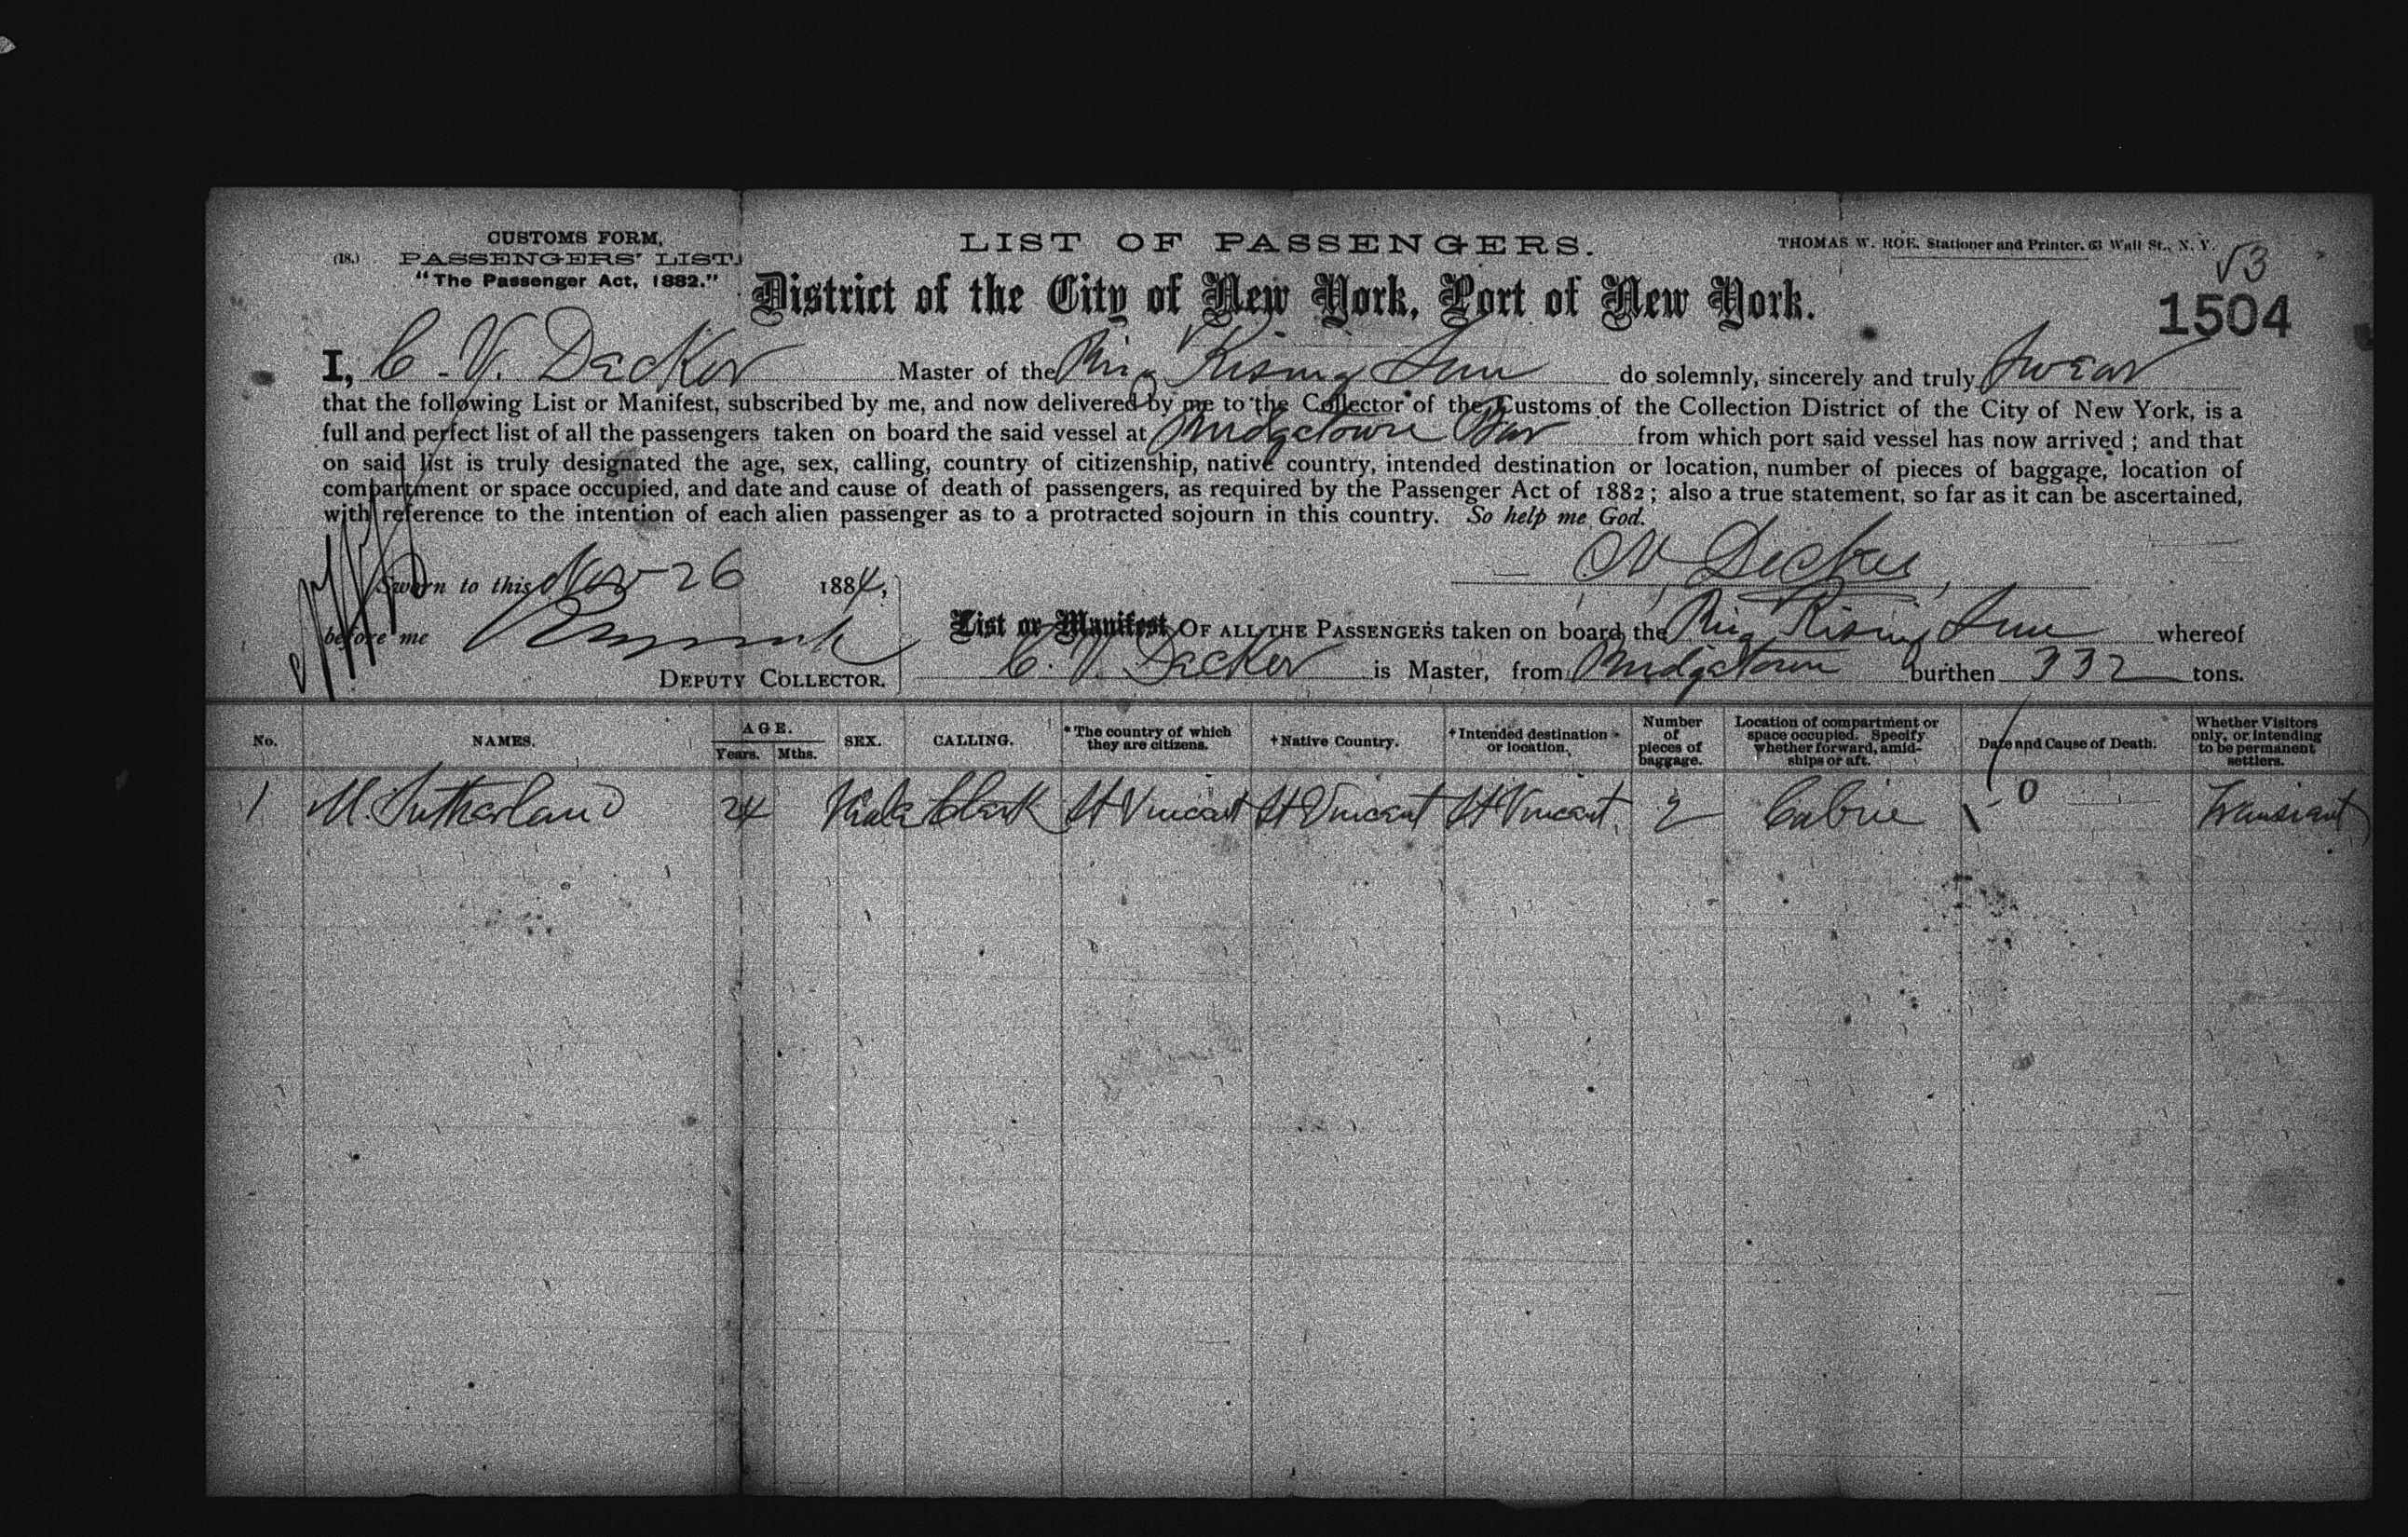 CUSTOMS FORM,
(18.) PASSENGERS' LIST.
"The Passenger Act, 1882."
LIST OF PASSENGERS.
THOMAS W. ROE, Stationer and Printer, 63 Wall St., N. Y.
√3
District of the City of New York, Port of New York.
1504
I, C. V. Decker Master of the Brig Rising Sun do solemnly, sincerely and truly Swear
that the following List or Manifest, subscribed by me, and now delivered by me to the Collector of the Customs of the Collection District of the City of New York, is a
full and perfect list of all the passengers taken on board the said vessel at Bridgetown Bar from which port said vessel has now arrived ; and that
on said list is truly designated the age, sex, calling, country of citizenship, native country, intended destination or location, number of pieces of baggage, location of
compartment or space occupied, and date and cause of death of passengers, as required by the Passenger Act of 1882 ; also a true statement, so far as it can be ascertained,
with reference to the intention of each alien passenger as to a protracted sojourn in this country. So help me God.
CV Decker
Sworn to this Nov 26 1884,
before me
DEPUTY COLLECTOR.
List or Manifest OF ALL THE PASSENGERS taken on board the Brig Rising Sun whereof
C. V. Decker is Master, from Bridgetown burthen 332 tons.
No. NAMES. AGE. Years. Mths. SEX. CALLING. * The country of which they are citizens. † Native Country. † Intended destination or location. Number of pieces of baggage. Location of compartment or space occupied. Specify whether forward, amidships or aft. Date and Cause of Death. Whether Visitors only, or intending to be permanent settlers.
1 M. Sutherland 24 Male Clerk St Vincent St Vincent St Vincent 2 Cabin 0 Transient